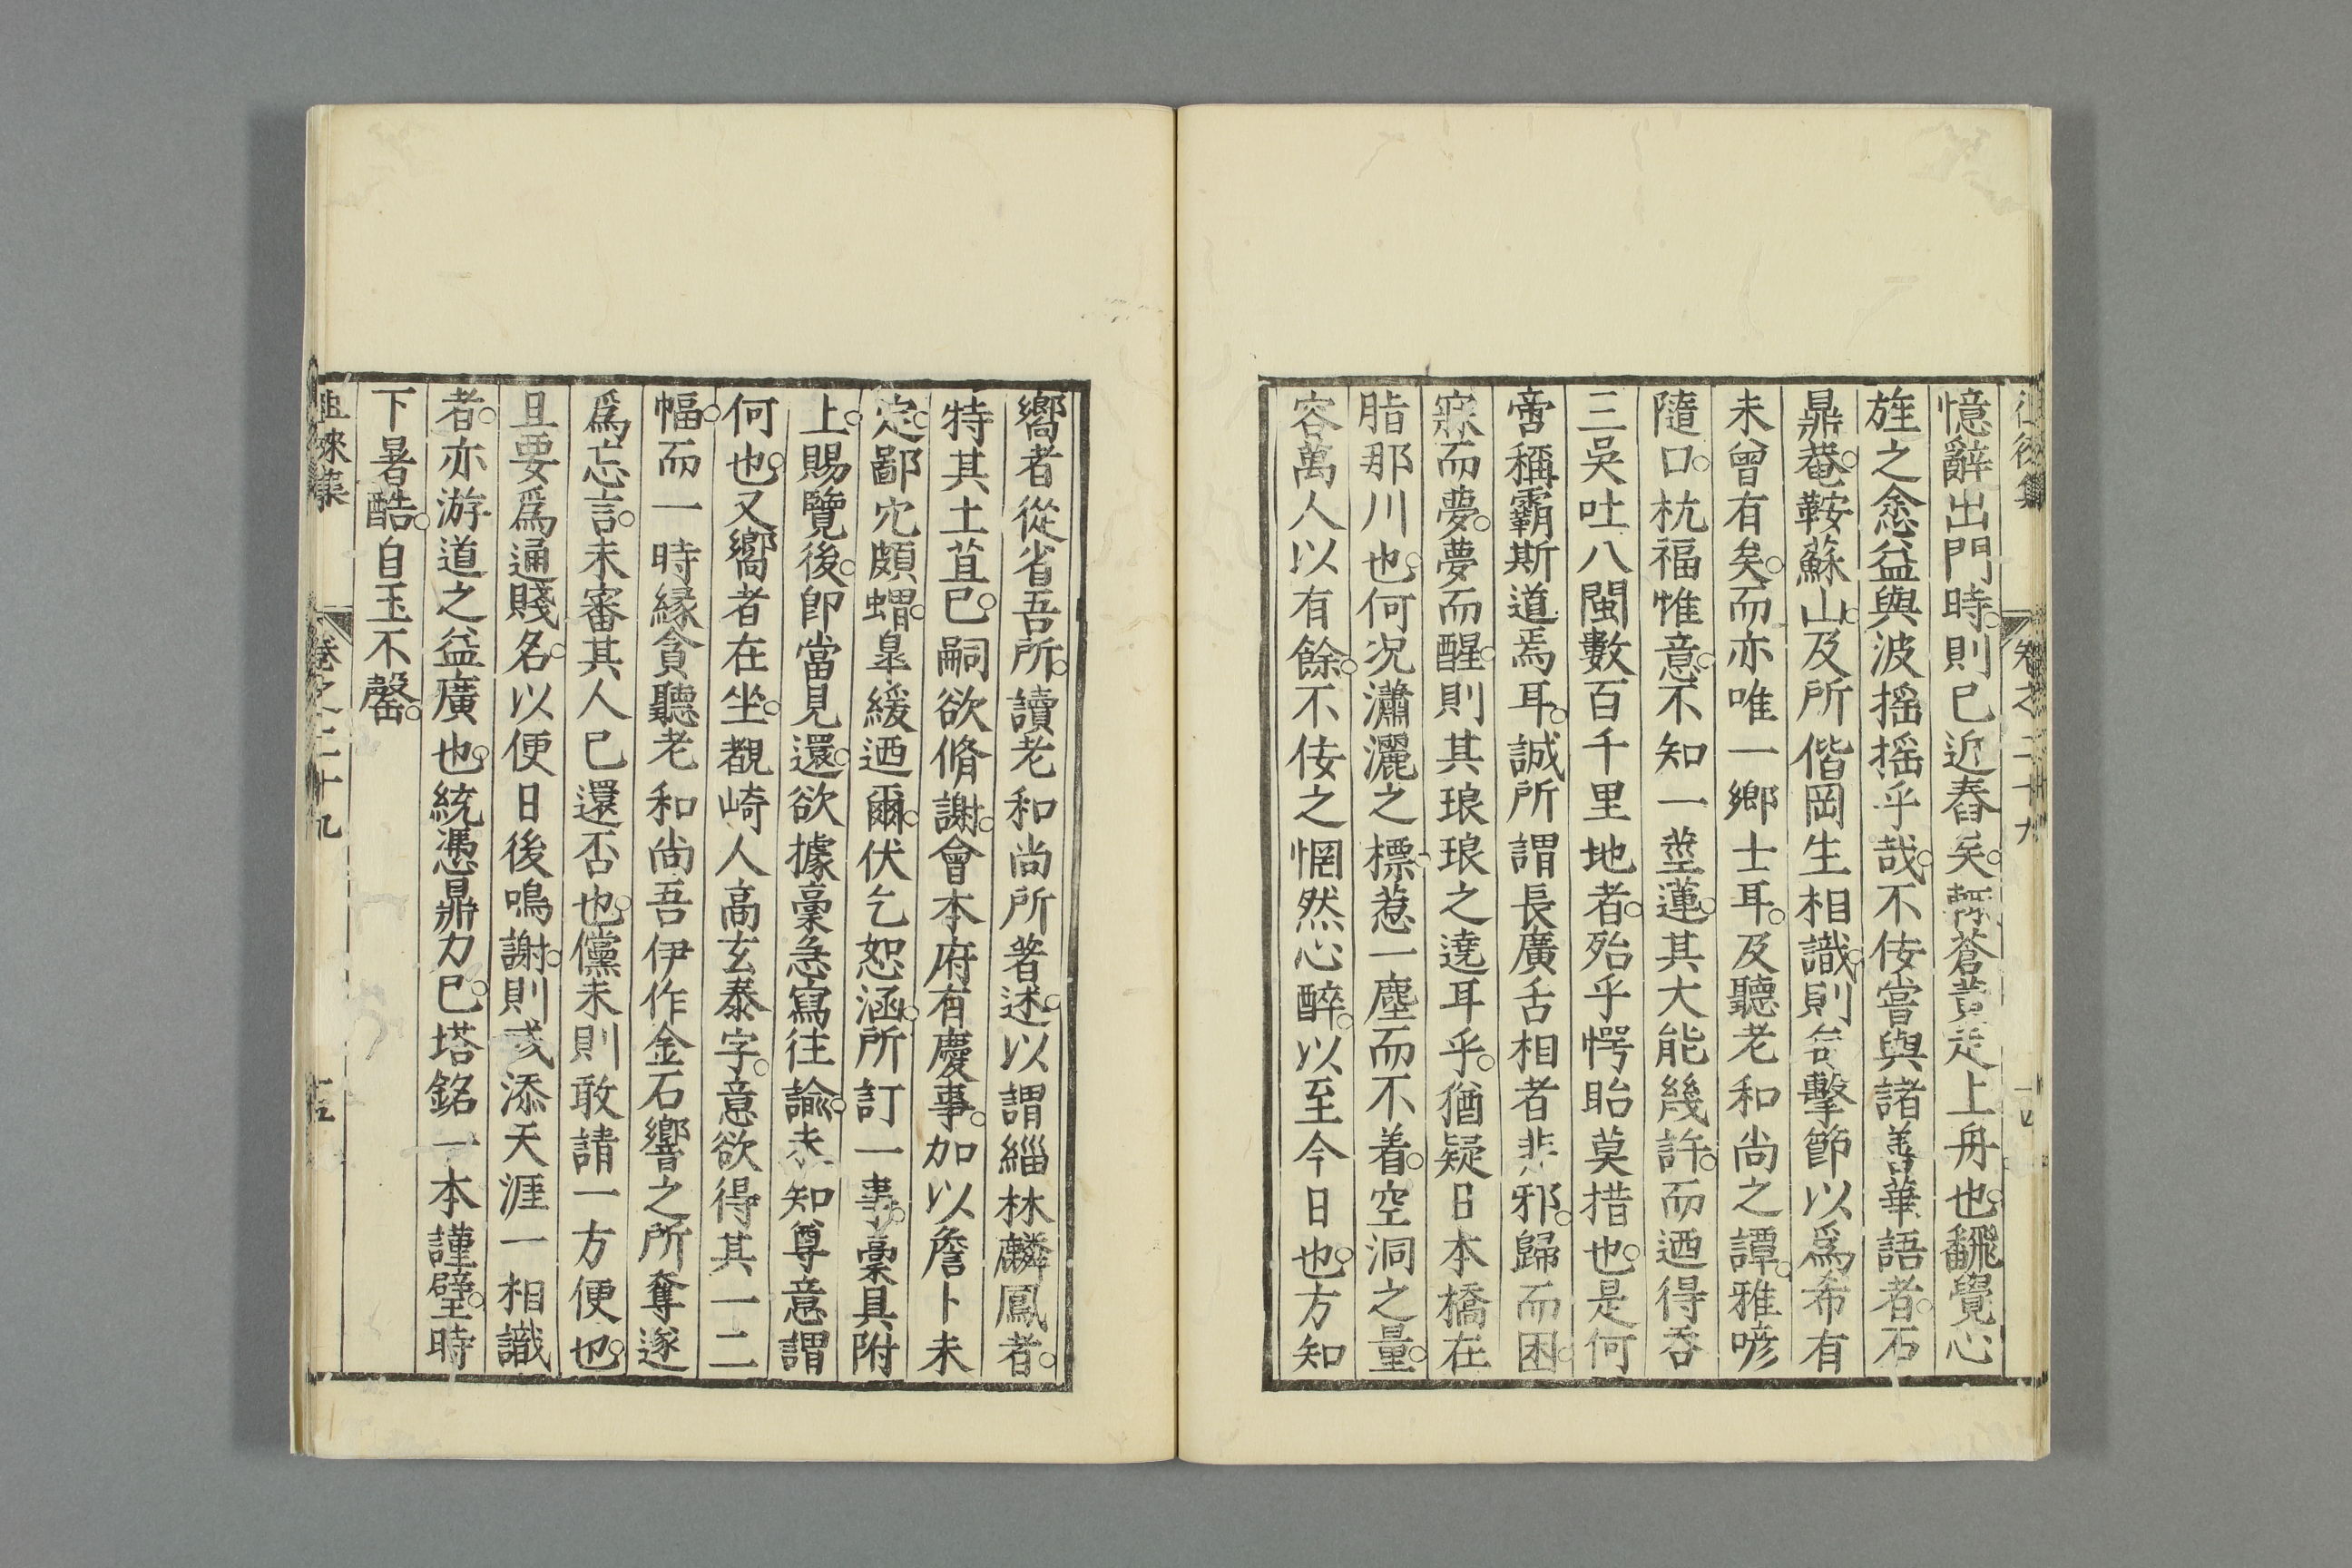 徂徠集 卷之二十九
憶辭出門時。則已近舂矣。輙蒼黄走上舟也。飜覺心
旌之悆益與波搖搖乎哉。不佞嘗與諸善華語者。石
鼎菴。鞍蘇山。及所偕岡生相識。則每擊節以爲希有
未曾有矣。而亦唯一鄉士耳。及聽老和尚之譚。雅喭
隨口。杭福惟意。不知一莖蓮。其大能幾許。而迺得吞
三吳吐八閩數百千里地者。殆乎愕眙莫措也。是何
啻稱霸斯道焉耳。誠所謂長廣舌相者非邪。歸而困。
寐而夢。夢而醒。則其琅琅之遶耳乎。猶疑日本橋在
脂那川也。何況瀟灑之標。惹一塵而不着。空洞之量。
容萬人以有餘。不佞之惘然心醉。以至今日也。方知
嚮者從省吾所。讀老和尚所著述。以謂緇林麟鳳者。
特其土苴已。嗣欲脩謝。會本府有慶事。加以詹卜未
定。鄙冗頗蝟。辠緩迺爾。伏乞恕涵。所訂一事。稾具附
上。賜覽後。卽當見還。欲據稾急寫往諭。未知尊意謂
何也。又嚮者在坐。覩崎人高玄泰字。意欲得其一二
幅。而一時緣貪聽老和尚吾伊作金石響之所奪遂
爲忘言。未審其人已還否也。儻未則敢請一方便也。
且要爲通賤名。以便日後鳴謝。則或添天涯一相識
者。亦游道之益廣也。統憑鼎力已。塔銘一本謹璧。時
下暑酷。自玉不罄。
徂徠集 卷之二十九 十五